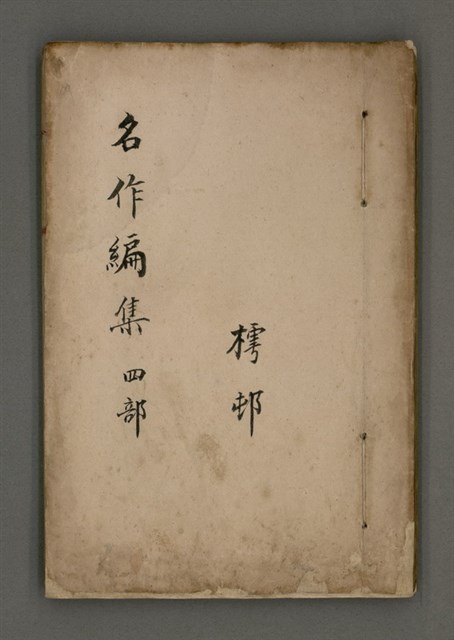 樗邨
名作編集 四部